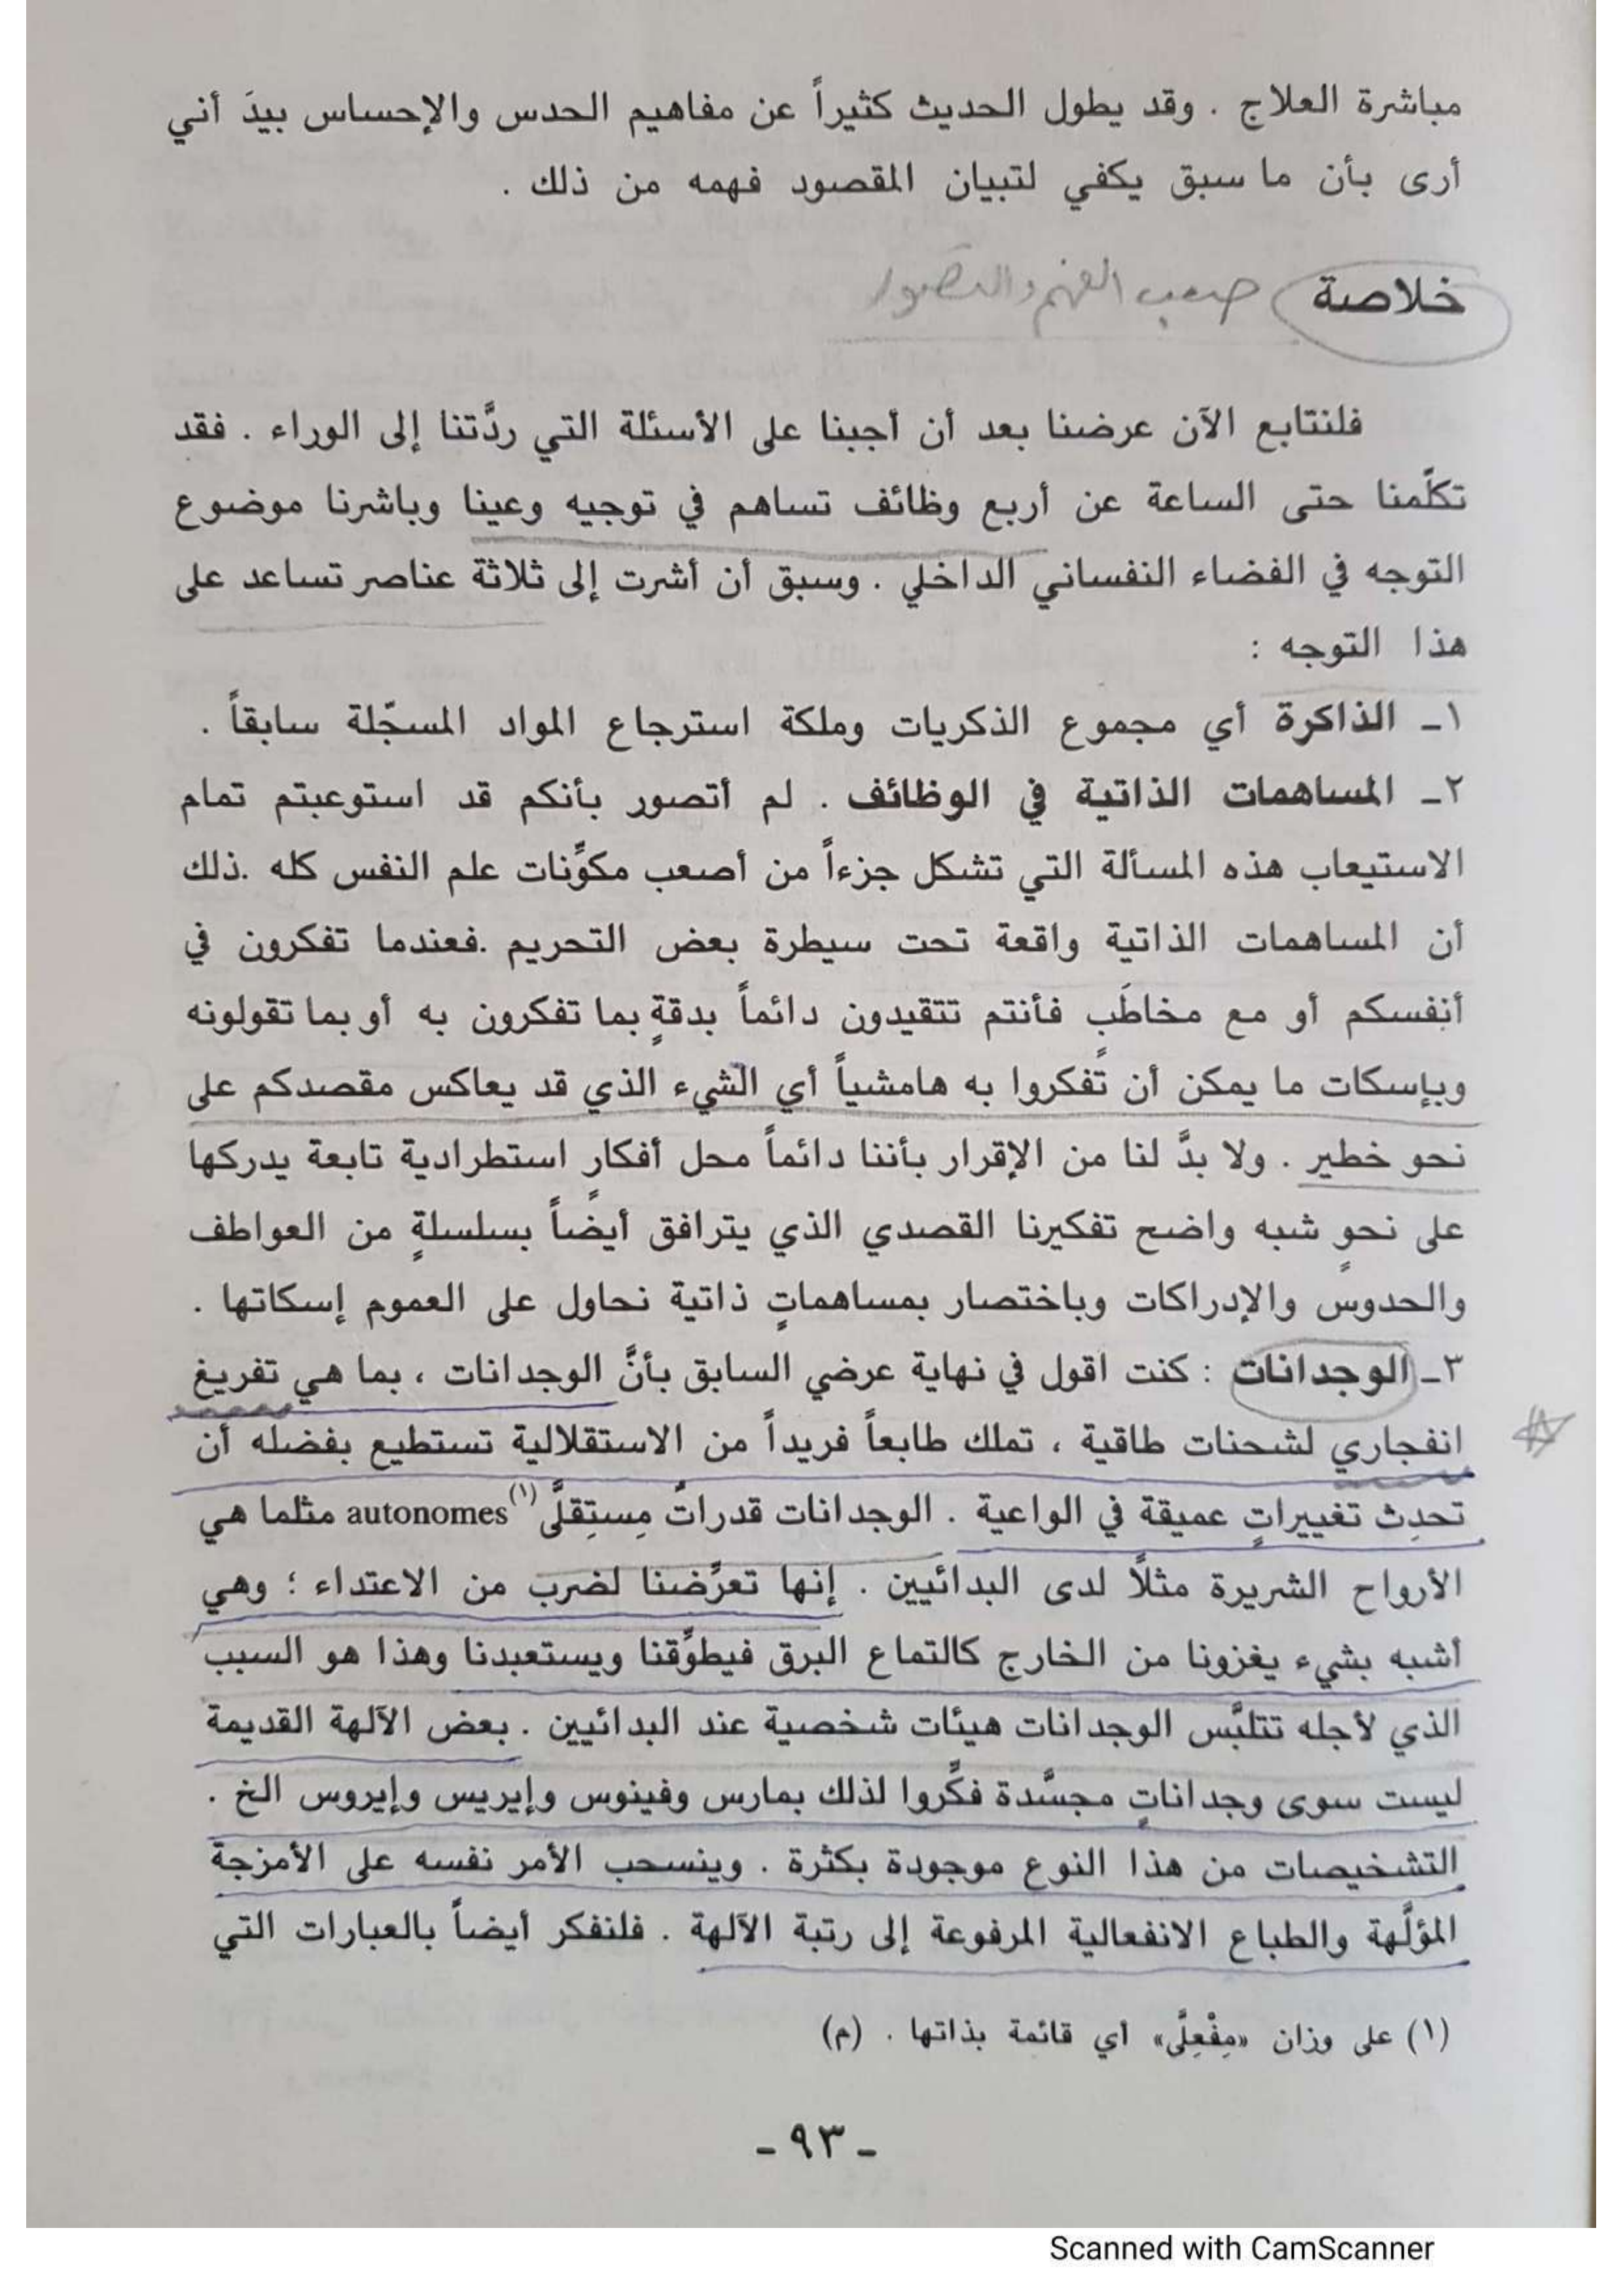 مباشرة العلاج . وقد يطول الحديث كثيراً عن مفاهيم الحدس والإحساس بيدَ أني
أرى بأن ما سبق يكفي لتبيان المقصود فهمه من ذلك .
خلاصة صعب الفهم والتصور
فلنتابع الآن عرضنا بعد أن أجبنا على الأسئلة التي ردَّتنا إلى الوراء . فقد
تكلّمنا حتى الساعة عن أربع وظائف تساهم في توجيه وعينا وباشرنا موضوع
التوجه في الفضاء النفساني الداخلي . وسبق أن أشرت إلى ثلاثة عناصر تساعد على
هذا التوجه :
١ـ الذاكرة أي مجموع الذكريات وملكة استرجاع المواد المسجّلة سابقاً .
٢ـ المساهمات الذاتية في الوظائف . لم أتصور بأنكم قد استوعبتم تمام
الاستيعاب هذه المسألة التي تشكل جزءاً من أصعب مكوِّنات علم النفس كله .ذلك
أن المساهمات الذاتية واقعة تحت سيطرة بعض التحريم .فعندما تفكرون في
أنفسكم أو مع مخاطَبٍ فأنتم تتقيدون دائماً بدقةٍ بما تفكرون به أو بما تقولونه
وبإسكات ما يمكن أن تُفكروا به هامشياً أي الشيء الذي قد يعاكس مقصدكم على
نحو خطير . ولا بدَّ لنا من الإقرار بأننا دائماً محل أفكار استطرادية تابعة يدركها
على نحوٍ شبه واضح تفكيرنا القصدي الذي يترافق أيضاً بسلسلةٍ من العواطف
والحدوس والإدراكات وباختصار بمساهماتٍ ذاتية نحاول على العموم إسكاتها .
٣ـ الوجدانات : كنت اقول في نهاية عرضي السابق بأنَّ الوجدانات ، بما هي تفريغ
انفجاري لشحنات طاقية ، تملك طابعاً فريداً من الاستقلالية تستطيع بفضله أن
تحدِث تغييراتٍ عميقة في الواعية . الوجدانات قدراتٌ مِستِقلَّى autonomes(١) مثلما هي
الأرواح الشريرة مثلاً لدى البدائيين . إنها تعرِّضنا لضرب من الاعتداء ؛ وهي
أشبه بشيء يغزونا من الخارج كالتماع البرق فيطوِّقنا ويستعبدنا وهذا هو السبب
الذي لأجله تتلبَّس الوجدانات هيئات شخصية عند البدائيين . بعض الآلهة القديمة
ليست سوى وجداناتٍ مجسَّدة فكِّروا لذلك بمارس وفينوس وإيريس وإيروس الخ .
التشخيصات من هذا النوع موجودة بكثرة . وينسحب الأمر نفسه على الأمزجة
المؤلَّهة والطباع الانفعالية المرفوعة إلى رتبة الآلهة . فلنفكر أيضاً بالعبارات التي
(١) على وزان «مِفْعِلَّى» أي قائمة بذاتها . (م)
- ٩٣ -
Scanned with CamScanner